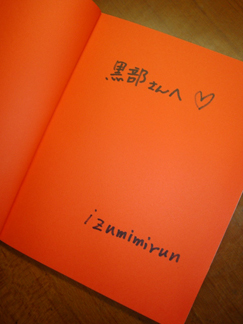 黒部さんへ♡
izumimirun